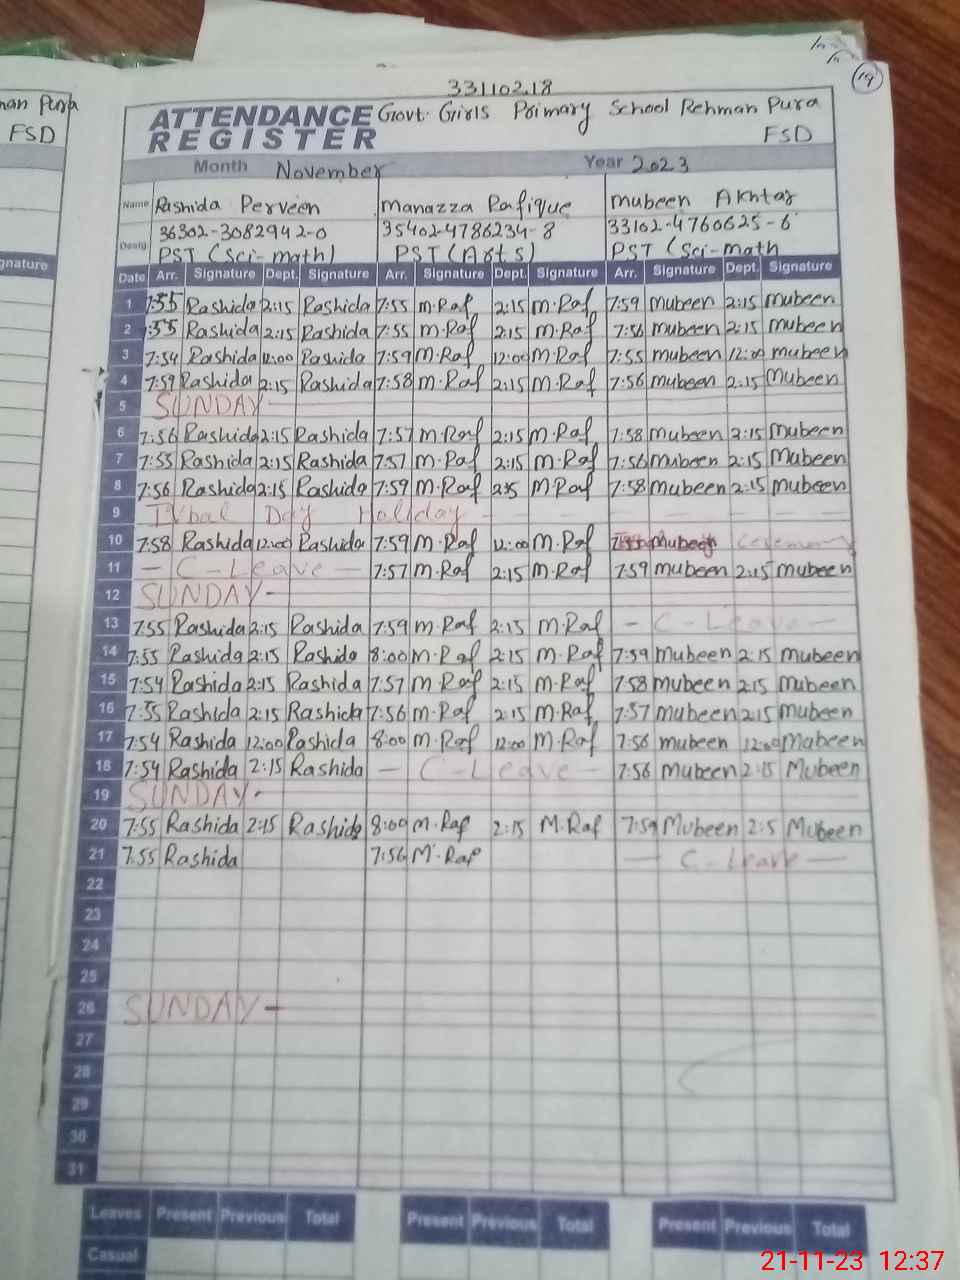 19
33110218
man Pura
FSD
gnature
ATTENDANCE REGISTER Govt. Girls Primary School Rehman Pura
FSD
Month November Year 2023
Name Rashida Perveen Manazza Rafique Mubeen Akhtar
36302-3082942-0 35402-4786234-8 33102-4760625-6
Desig PST (Sci-math) PST (Arts) PST (Sci-math
Date Arr. Signature Dept. Signature Arr. Signature Dept. Signature Arr. Signature Dept. Signature
1 7:55 Rashida 2:15 Rashida 7:55 M.Raf 2:15 M.Raf 7:59 mubeen 2:15 mubeen
2 :55 Rashida 2:15 Rashida 7:55 M.Raf 2:15 M.Raf 7:56 mubeen 2:15 mubeen
3 7:54 Rashida 12:00 Rashida 7:59 M.Raf 12:00 M.Raf 7:55 mubeen 12:00 mubeen
4 7:59 Rashida 2:15 Rashida 7:58 M.Raf 2:15 M.Raf 7:56 mubeen 2:15 Mubeen
5 SUNDAY -
6 7:56 Rashida 2:15 Rashida 7:57 M.Raf 2:15 M.Raf 7:58 mubeen 2:15 mubeen
7 7:55 Rashida 2:15 Rashida 7:57 M.Raf 2:15 M.Raf 7:56 mubeen 2:15 Mubeen
8 7:56 Rashida 2:15 Rashida 7:59 M.Raf M.Raf 7:58 mubeen 2:15 mubeen
9 Iqbal Day Holiday - - - - - - -
10 7:58 Rashida 12:00 Rashida 7:59 M.Raf 12:00 M.Raf Mubeen Ceremony
11 - C-Leave - 7:57 M.Raf 2:15 M.Raf 7:59 mubeen 2:15 mubeen
12 SUNDAY -
13 7:55 Rashida 2:15 Rashida 7:59 M.Raf 2:15 M.Raf - C-Leave -
14 7:55 Rashida 2:15 Rashida 8:00 M.Raf 2:15 M.Raf 7:59 mubeen 2:15 mubeen
15 7:54 Rashida 2:15 Rashida 7:57 M.Raf 2:15 M.Raf 7:58 mubeen 2:15 mubeen
16 7:55 Rashida 2:15 Rashida 7:56 M.Raf 2:15 M.Raf 7:57 mubeen 2:15 mubeen
17 7:54 Rashida 12:00 Rashida 8:00 M.Raf 12:00 M.Raf 7:56 mubeen 12:00 Mabeen
18 7:54 Rashida 2:15 Rashida - C-Leave - 7:56 Mubeen 2:15 Mubeen
19 SUNDAY -
20 7:55 Rashida 2:15 Rashida 8:00 M.Raf 2:15 M.Raf 7:59 Mubeen 2:5 Mubeen
21 7.55 Rashida 7:56 M.Raf - C-Leave -
22
23
24
25
26 SUNDAY -
27
28
29
30
31
Leaves Present Previous Total Present Previous Total Present Previous Total
Casual
21-11-23 12:37